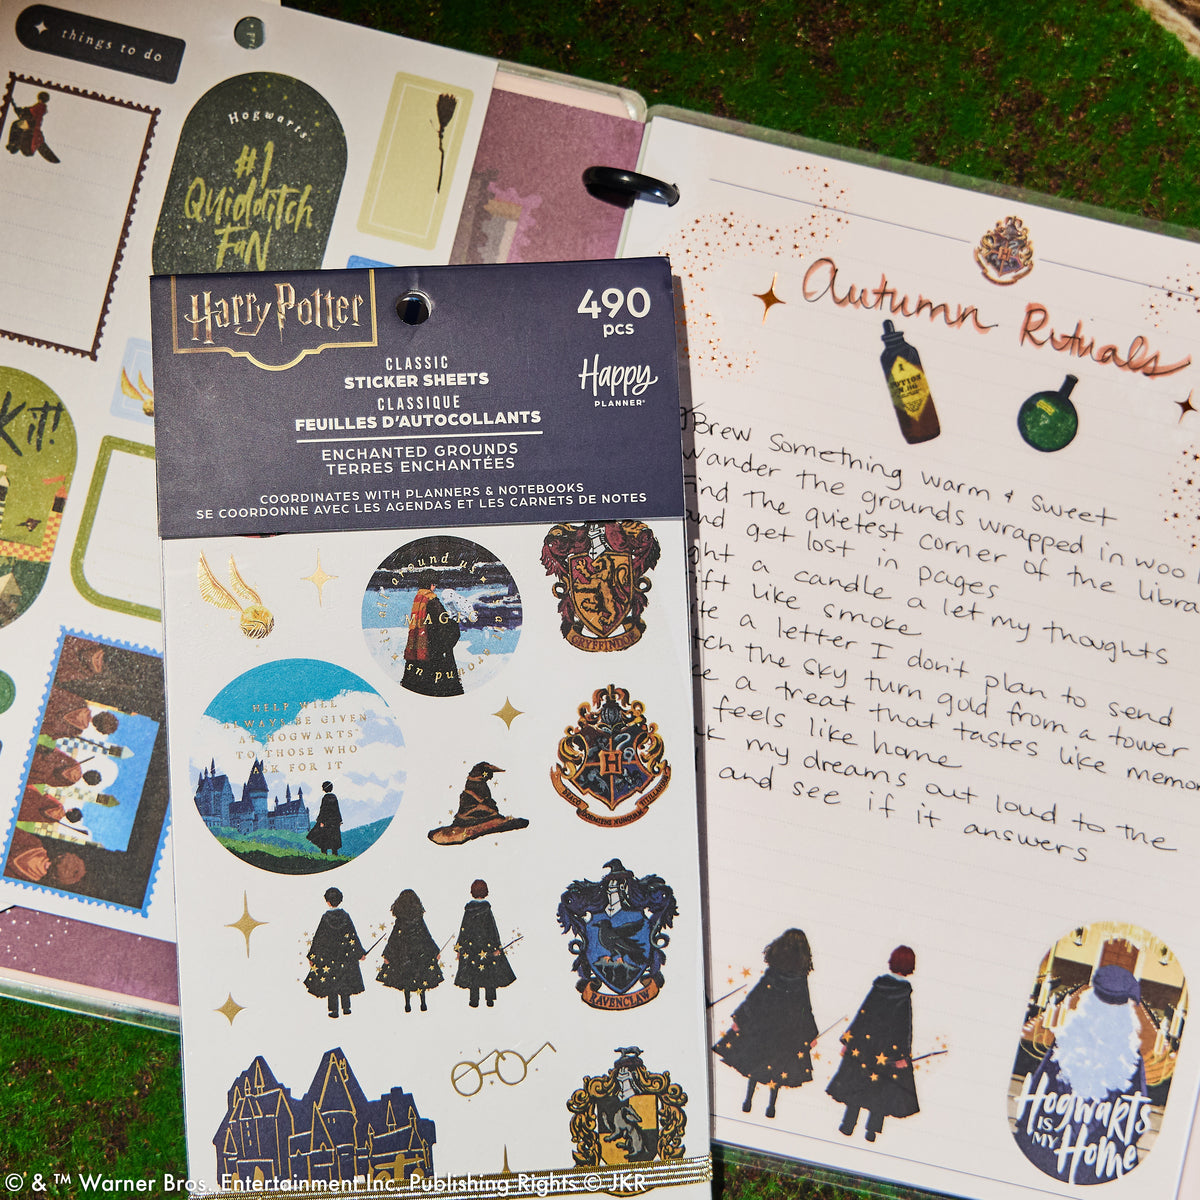 things to do
Hogwarts
#1
Quidditch
Fan
Kit!
Harry Potter
490
pcs
CLASSIC
STICKER SHEETS
CLASSIQUE
FEUILLES D'AUTOCOLLANTS
Happy
PLANNER®
ENCHANTED GROUNDS
TERRES ENCHANTÉES
COORDINATES WITH PLANNERS & NOTEBOOKS
SE COORDONNE AVEC LES AGENDAS ET LES CARNETS DE NOTES
around us
MAGIC
around us
GRYFFINDOR
HELP WILL
ALWAYS BE GIVEN
AT HOGWARTS™
TO THOSE WHO
ASK FOR IT
H
DRACO DORMIENS NUNQUAM TITILLANDUS
RAVENCLAW
Autumn Rituals
Brew something warm & sweet
Wander the grounds wrapped in woo
Find the quietest corner of the libra
and get lost in pages
ght a candle & let my thoughts
ift like smoke
ite a letter I don't plan to send
tch the sky turn gold from a tower
ke a treat that tastes like memor
feels like home
ak my dreams out loud to the
and see if it answers
Hogwarts
IS
MY
Home
© & ™ Warner Bros. Entertainment Inc. Publishing Rights © JKR